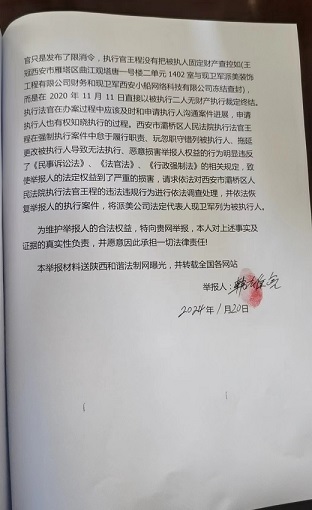 官只是发布了限消令，执行官王程没有把被执人固定财产查控如(王
冠西安市雁塔区曲江观塘唐一号楼二单元1402室与现卫军派美装饰
工程有限公司财务和现卫军西安小船网络科技有限公司冻结查封)，
而是在2020年11月11日直接以被执行二人无财产执行裁定终结。
执行法官在办案过程中应该及时和申请执行人沟通案件进展，申请
执行人也有权知晓执行的过程。西安市灞桥区人民法院执行法官王
程在强制执行案件中怠于履行职责、玩忽职守错列被执行人、拖延
更改被执行人导致无法执行、恶意损害举报人权益的行为明显违反
了《民事诉讼法》、《法官法》、《行政强制法》的相关规定，致
使举报人的法定权益到了严重的损害，请求依法对西安市灞桥区人
民法院执行法官王程的违法违规行为进行依法调查处理，并依法恢
复举报人的执行案件，将派美公司法定代表人现卫军列为被执行人。
为维护举报人的合法权益，特向贵网举报，本人对上述事实及
证据的真实性负责，并愿意因此承担一切法律责任!
本举报材料送陕西和谐法制网曝光，并转载全国各网站
举报人：
2024年1月20日